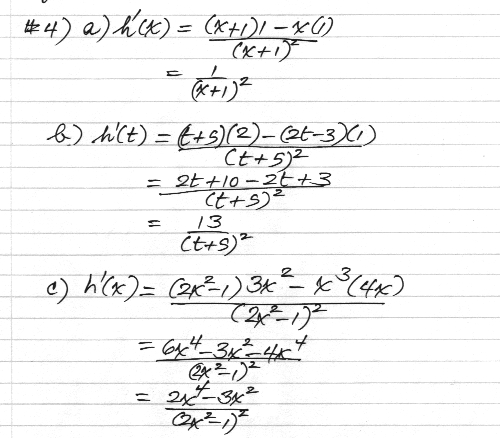 #4) a) h'(x) = ((x+1)1 - x(1))/(x+1)²
= 1/(x+1)²
b.) h'(t) = ((t+5)(2) - (2t-3)(1))/(t+5)²
= (2t+10-2t+3)/(t+5)²
= 13/(t+5)²
c) h'(x) = ((2x²-1)3x² - x³(4x))/(2x²-1)²
= (6x⁴-3x²-4x⁴)/(2x²-1)²
= (2x⁴-3x²)/(2x²-1)²